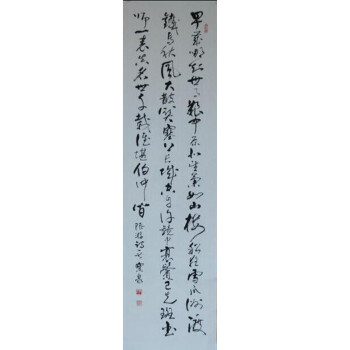 早岁那知世事艰中原北望气如山楼船夜雪瓜洲渡
铁马秋风大散关塞上长城空自许镜中衰鬓已先斑出
师一表真名世千载谁堪伯仲间 陆游诗